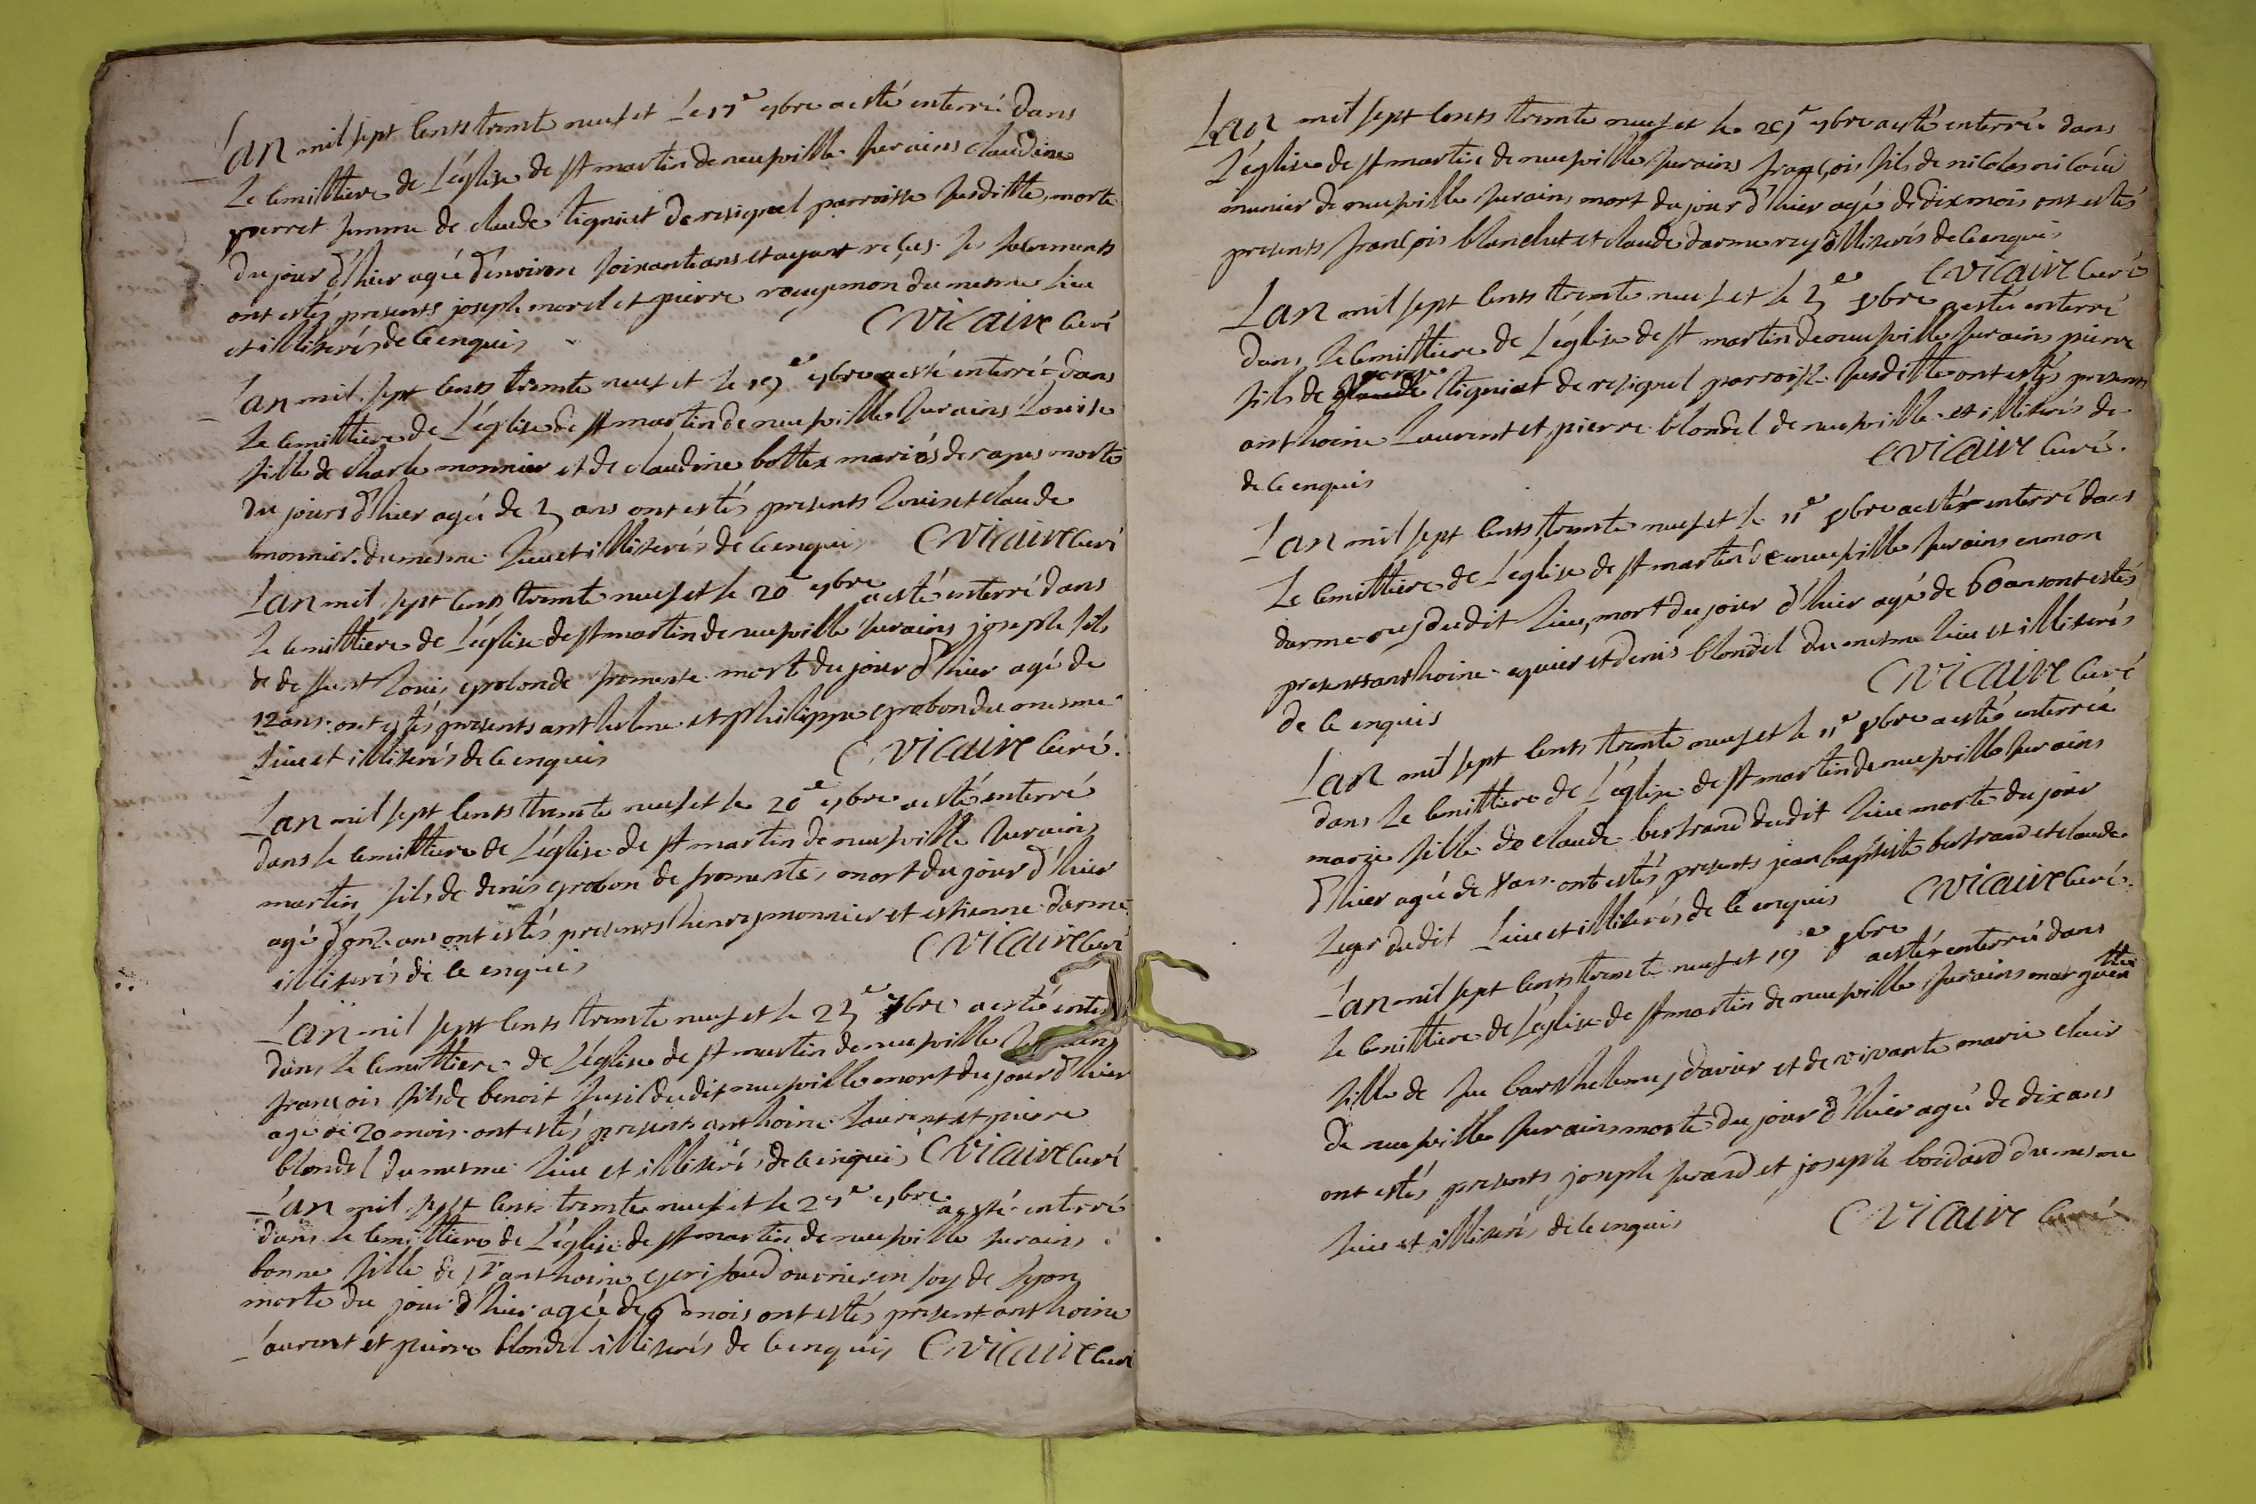 Lan mil sept cents trente neuf et le 17e 9bre a esté enterré dans
le cemittiere de l'église de st martin de neufville sur ains claudine
perret femme de claude tigniet de resignel parroisse susditte, morte
du jour d'hier agée d'environ soixante ans et ayant reçus ses sacrements
ont estés presents joseph morel et pierre du mesme lieu
et illiterés de ce enquis CVicaire curé
Lan mil sept cents trente neuf et le 19e 9bre a esté enterré dans
le cemittiere de l'église de st martin de neufville sur ains Louise
fille de charle monnier et de claudine bottex mariés de rapes morte
du jours d'hier agée de 3 ans ont estés presents Louis et claude
monnier du mesme lieu et illiterés de ce enquis CVicaire curé
Lan mil sept cents trente neuf et le 20e 9bre a esté enterré dans
le cemittiere de l'église de st martin de neufville sur ains joseph fils
de deffunt Louis de fromente mort du jour d'hier agé de
12 ans ont estés presents anthelme et philippe grobon du mesme
lieu et illiterés de ce enquis CVicaire curé.
Lan mil sept cents trente neuf et le 20e 9bre a esté enterré
dans le cemittiere de l'église de st martin de neufville sur ains
martin fils de denis grobon de fromente, mort du jour d'hier
agé d'onze ans ont estés presents henry monnier et estienne darme
illiterés de ce enquis CVicaire curé
Lan mil sept cents trente neuf et le 23e 9bre a esté enter
dans le cemittiere de l'église de st martin de neufville sur ains
françois fils de benoit fusil dudit neufville mort du jour d'hier
agé de 20 mois ont estés presents anthoine Laurent et pierre
blondel du mesme lieu et illiterés de ce enquis CVicaire curé
Lan mil sept cents trente neuf et le 27e 9bre a esté enterré
dans le cemittiere de l'église de st martin de neufville sur ains
bonne fille de sr anthoine ouvrier en soy de Lyon
morte du jour d'hier agée de 6 mois ont estés present anthoine
Laurent et pierre blondel illiterés de ce enquis CVicaire curé
Lan mil sept cents trente neuf et le 29e 9bre a esté enterré dans
l'église de st martin de neufville sur ains françois fils de nicolas nicoud
munier de neufville sur ains mort du jour d'hier agé de dix mois ont estés
presents françois blanchet et claude darmerey illiterés de ce enquis
CVicaire curé
Lan mil sept cents trente neuf et le 3e xbre a esté enterré
dans le cemittiere de l'église de st martin de neufville sur ains pierre
fils de tigniet de resignel parroisse susditte ont estés presents
anthoine Laurent et pierre blondel de neufville et illiterés de
de ce enquis CVicaire curé.
Lan mil sept cents trente neuf et le 11e xbre a esté enterré dans
le cemittiere de l'église de st martin de neufville sur ains eumon
darmerey dudit lieu, mort du jour d'hier agé de 60 ans ont estés
presents anthoine et denis blondel du mesme lieu et illiterés
de ce enquis CVicaire curé
Lan mil sept cents trente neuf et le 11e xbre a esté enterrée
dans le cemittiere de l'église de st martin de neufville sur ains
marie fille de claude bertrand dudit lieu morte du jour
d'hier agée de ans ont estés presents jean baptiste bertrand et claude
Leger dudit lieu et illiterés de ce enquis CVicaire curé.
Lan mil sept cents trente neuf et 19e xbre a esté enterrée dans
le cemittiere de l'église de st martin de neufville sur ains margueritte
fille de feu barthelemy davier et de vivante marie clair
de neufville sur ains morte du jour d'hier agée de dix ans
ont estés presents joseph et joseph du mesme
lieu et illiterés de ce enquis CVicaire curé